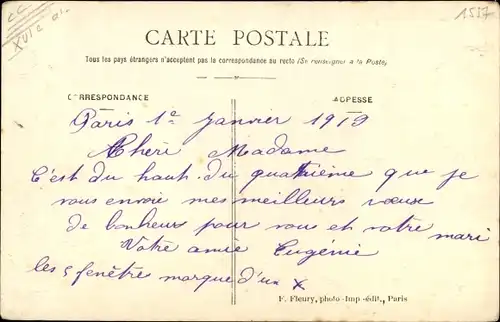 CC
XVIe ar.
1537
CARTE POSTALE
Tous les pays étrangers n'acceptent pas la correspondance au recto (Se renseigner à la Poste)
CORRESPONDANCE
ADRESSE
Paris 1e Janvier 1919
Chèri Madame
C'est du haut du quatrième que je
vous envoie mes meilleurs vœux
de bonheur pour vous et votre mari
Votre amie Eugénie
les 5 fenêtre marque d'un X
F. Fleury, photo-Imp-édit., Paris